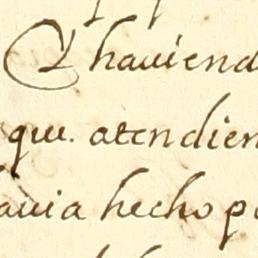 Y hauiend
que. atendien
auia hecho po